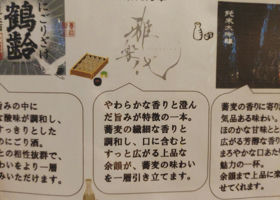 にごりざけ
鶴齢
雅楽代
純米大吟醸
旨みの中に
な酸味が調和し、
すっきりとした
のにごり酒。
との相性抜群で、
いをより一層
みいただけます。
やわらかな香りと澄ん
だ旨みが特徴の一本。
蕎麦の繊細な香りと
調和し、口に含むと
すっと広がる上品な
余韻が、蕎麦の味わい
を一層引き立てます。
蕎麦の香りに寄
気品ある味わい。
ほのかな甘味とと
に広がる芳醇な香り
まろやかな口あた
魅力の一杯。
余韻まで上品に楽
せてくれます。